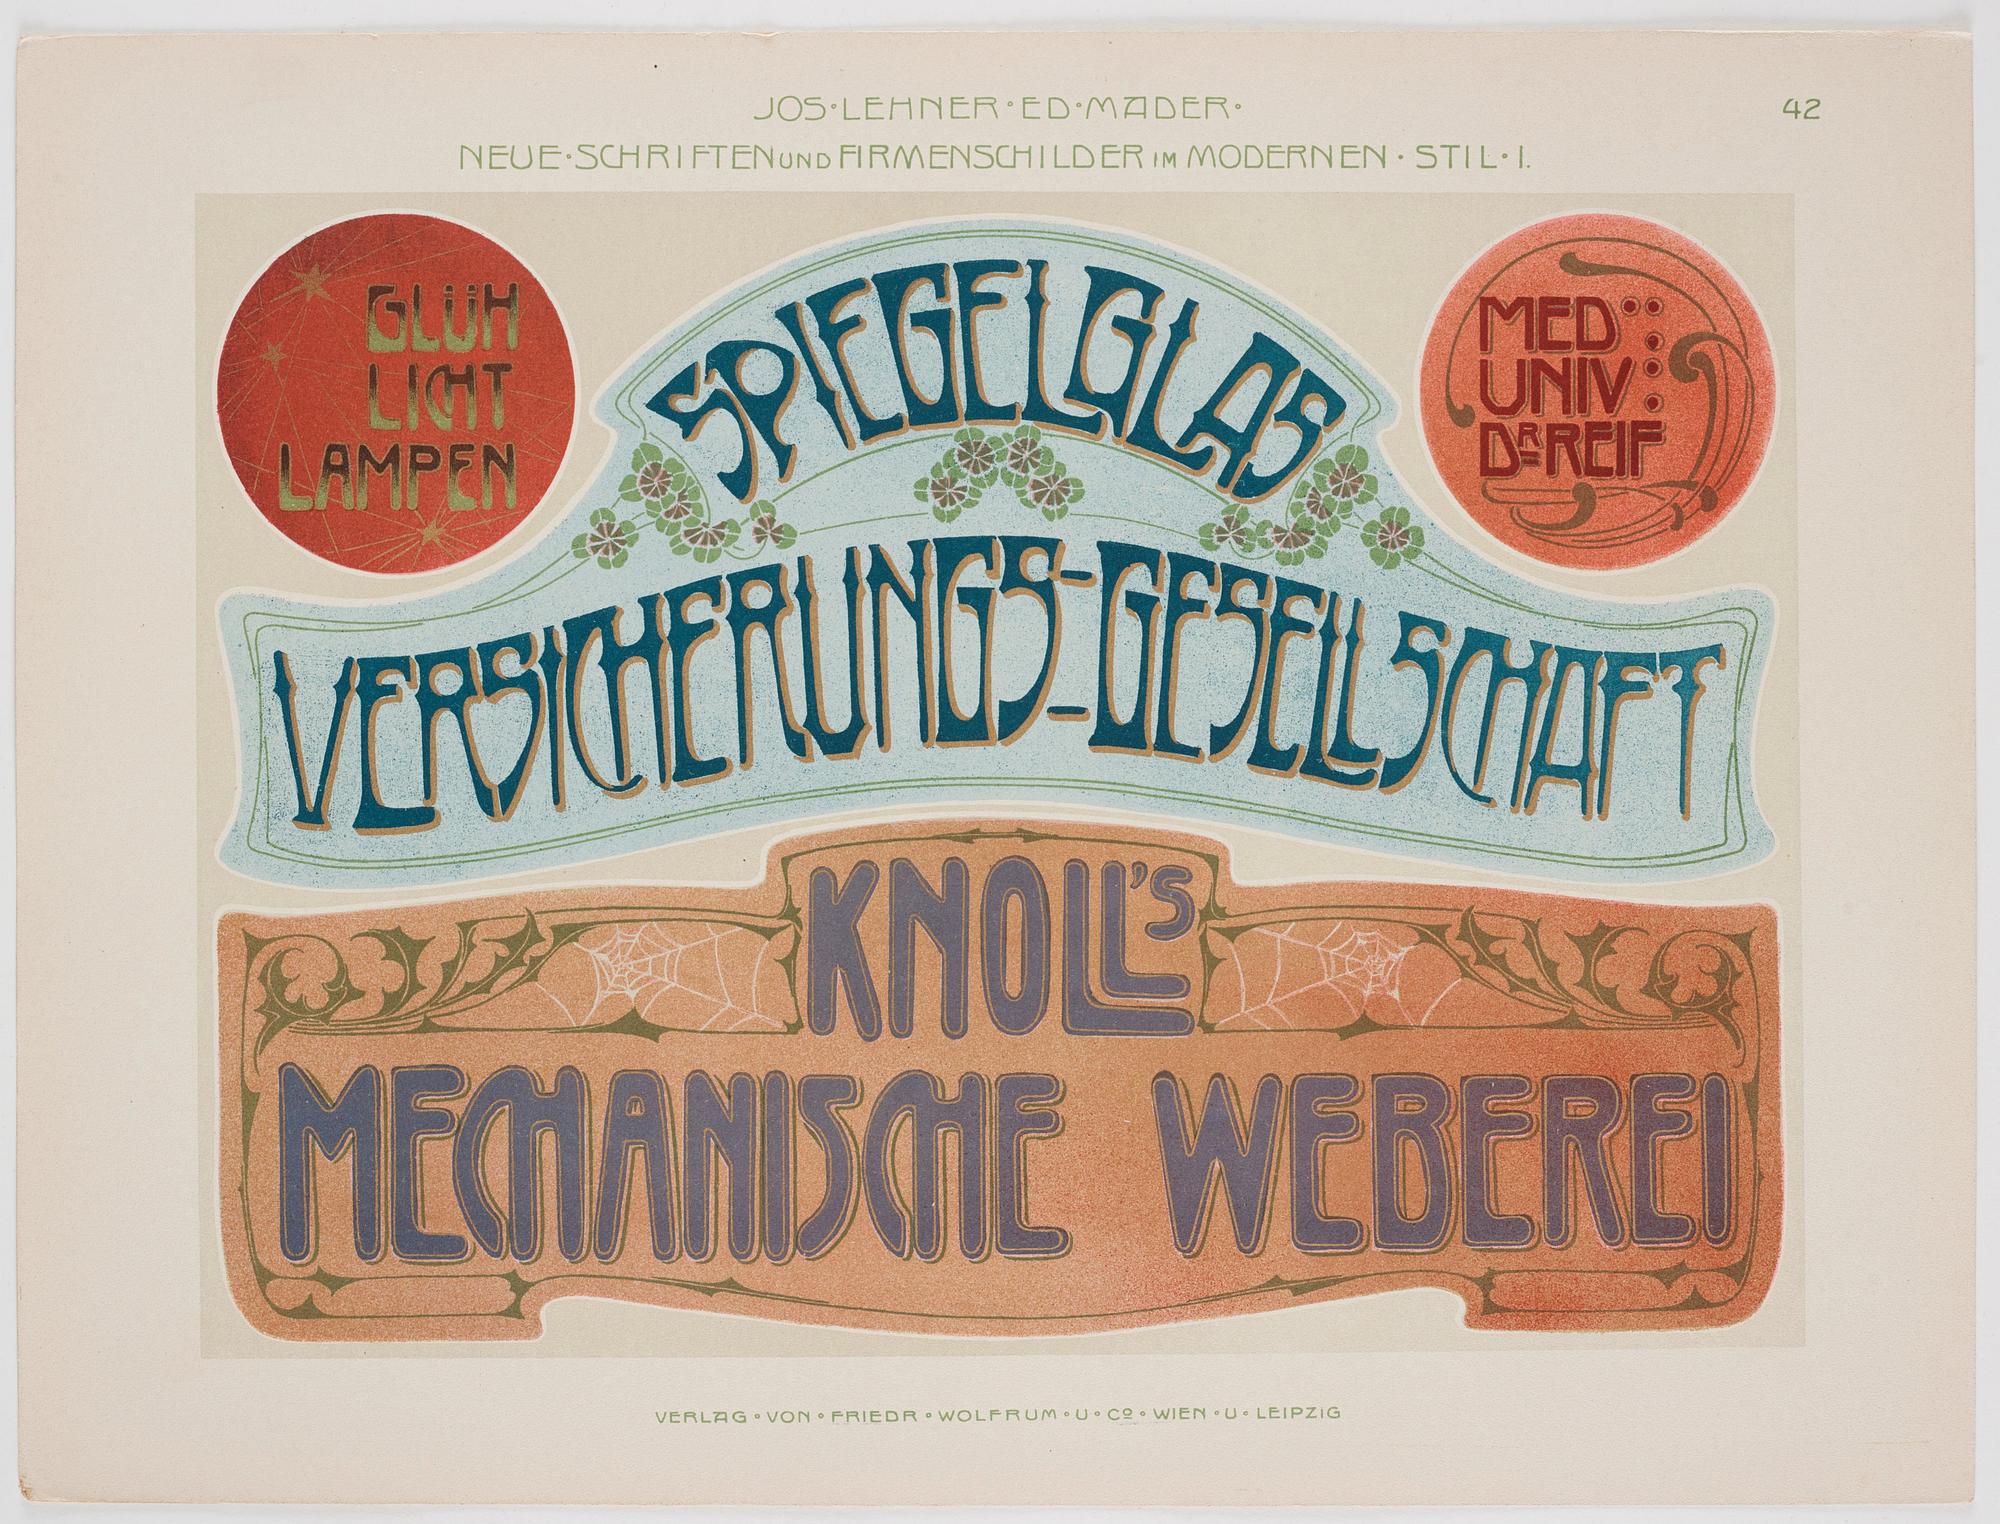 JOS·LEHNER·ED·MADER·
42
NEUE·SCHRIFTEN UND FIRMENSCHILDER IM MODERNEN·STIL·I.
GLÜH
LICHT
LAMPEN
SPIEGELGLAS
VERSICHERUNGS-GESELLSCHAFT
MED
UNIV
DR REIF
KNOLL'S
MECHANISCHE WEBEREI
VERLAG·VON·FRIEDR·WOLFRUM·U·Cº·WIEN·U·LEIPZIG